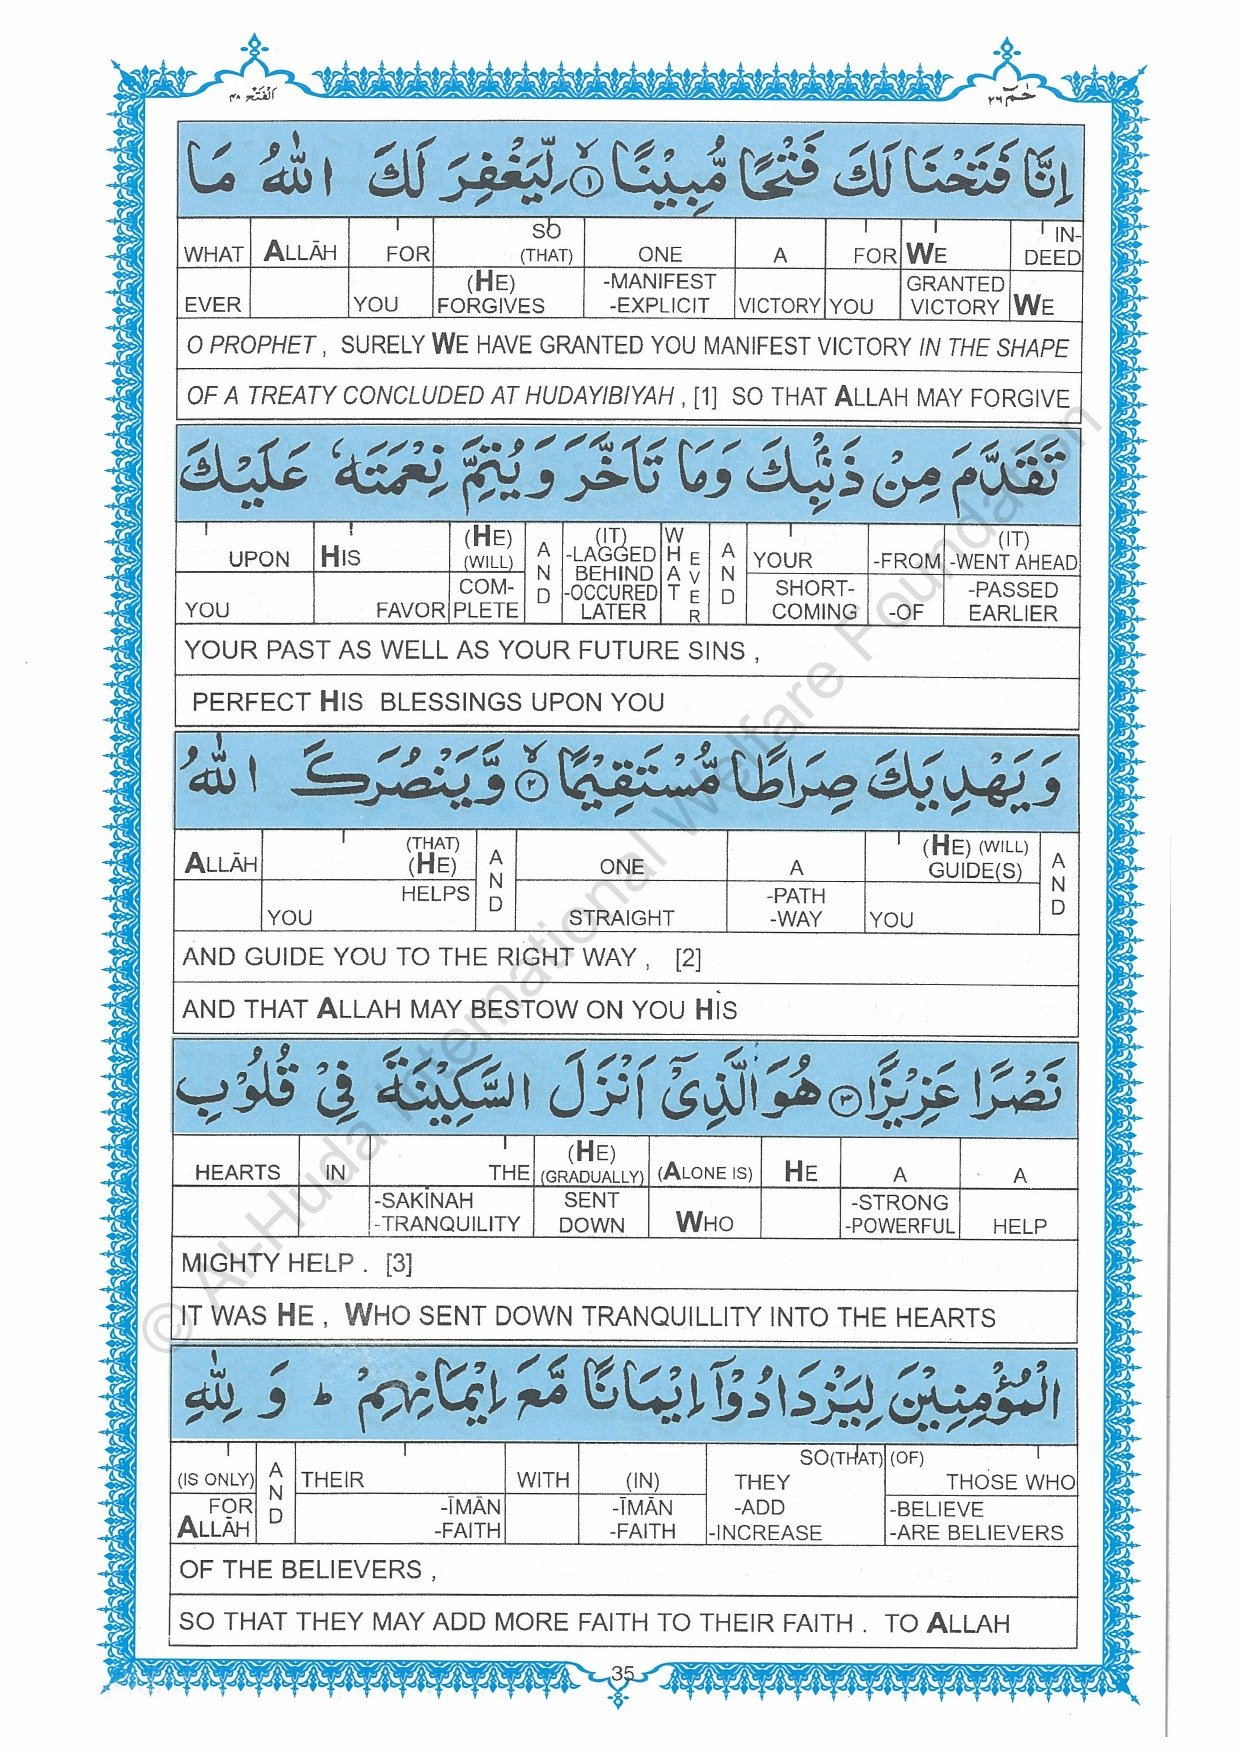 الفتح ٤٨
حٰمٓ ٢٦
اِنَّا فَتَحْنَا لَكَ فَتْحًا مُّبِيْنًا ۙ‏﴿۱﴾ لِّيَغْفِرَ لَكَ اللّٰهُ مَا
WHAT ALLĀH FOR SO (THAT) ONE A FOR WE IN-DEED
EVER YOU (HE) FORGIVES -MANIFEST -EXPLICIT VICTORY YOU GRANTED VICTORY WE
O PROPHET , SURELY WE HAVE GRANTED YOU MANIFEST VICTORY IN THE SHAPE
OF A TREATY CONCLUDED AT HUDAYIBIYAH , [1] SO THAT ALLAH MAY FORGIVE
تَقَدَّمَ مِنْ ذَنْۢبِكَ وَمَا تَاَخَّرَ وَيُتِمَّ نِعْمَتَهٗ عَلَيْكَ
UPON HIS (HE) (WILL) AND (IT) -LAGGED BEHIND WHATEVER AND YOUR -FROM (IT) -WENT AHEAD
YOU FAVOR COM-PLETE -OCCURED LATER SHORT-COMING -OF -PASSED EARLIER
YOUR PAST AS WELL AS YOUR FUTURE SINS ,
PERFECT HIS BLESSINGS UPON YOU
وَيَهْدِيَكَ صِرَاطًا مُّسْتَقِيْمًا ۙ‏﴿۲﴾ وَّيَنْصُرَكَ اللّٰهُ
ALLĀH (THAT) (HE) AND ONE A (HE) (WILL) GUIDE(S) AND
YOU HELPS STRAIGHT -PATH -WAY YOU
AND GUIDE YOU TO THE RIGHT WAY , [2]
AND THAT ALLAH MAY BESTOW ON YOU HIS
نَصْرًا عَزِيْزًا ﴿۳﴾ هُوَ الَّذِيْۤ اَنْزَلَ السَّكِيْنَةَ فِيْ قُلُوْبِ
HEARTS IN THE (HE) (GRADUALLY) (ALONE IS) HE A A
-SAKĪNAH -TRANQUILITY SENT DOWN WHO -STRONG -POWERFUL HELP
MIGHTY HELP . [3]
IT WAS HE , WHO SENT DOWN TRANQUILLITY INTO THE HEARTS
الْمُؤْمِنِيْنَ لِيَزْدَادُوْۤا اِيْمَانًا مَّعَ اِيْمَانِهِمْ ؕ وَ لِلّٰهِ
(IS ONLY) AND THEIR WITH (IN) SO(THAT) THEY (OF) THOSE WHO
FOR ALLĀH -ĪMĀN -FAITH -ĪMĀN -FAITH -ADD -INCREASE -BELIEVE -ARE BELIEVERS
OF THE BELIEVERS ,
SO THAT THEY MAY ADD MORE FAITH TO THEIR FAITH . TO ALLAH
35
© Al-Huda International Welfare Foundation